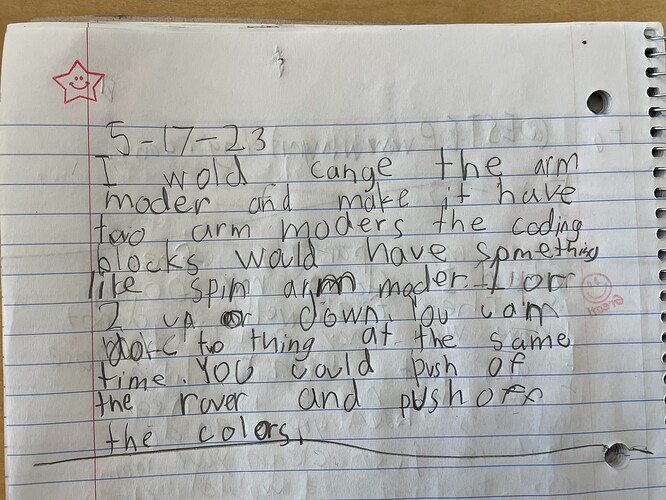 5-17-23
I wold cange the arm
moder and make it have
two arm moders the coding
blocks would have spmething
like spin arm moder 1 or
2 up or down. You can
two thing at the same
time. YOU could push of
the rover and push off
the colors.